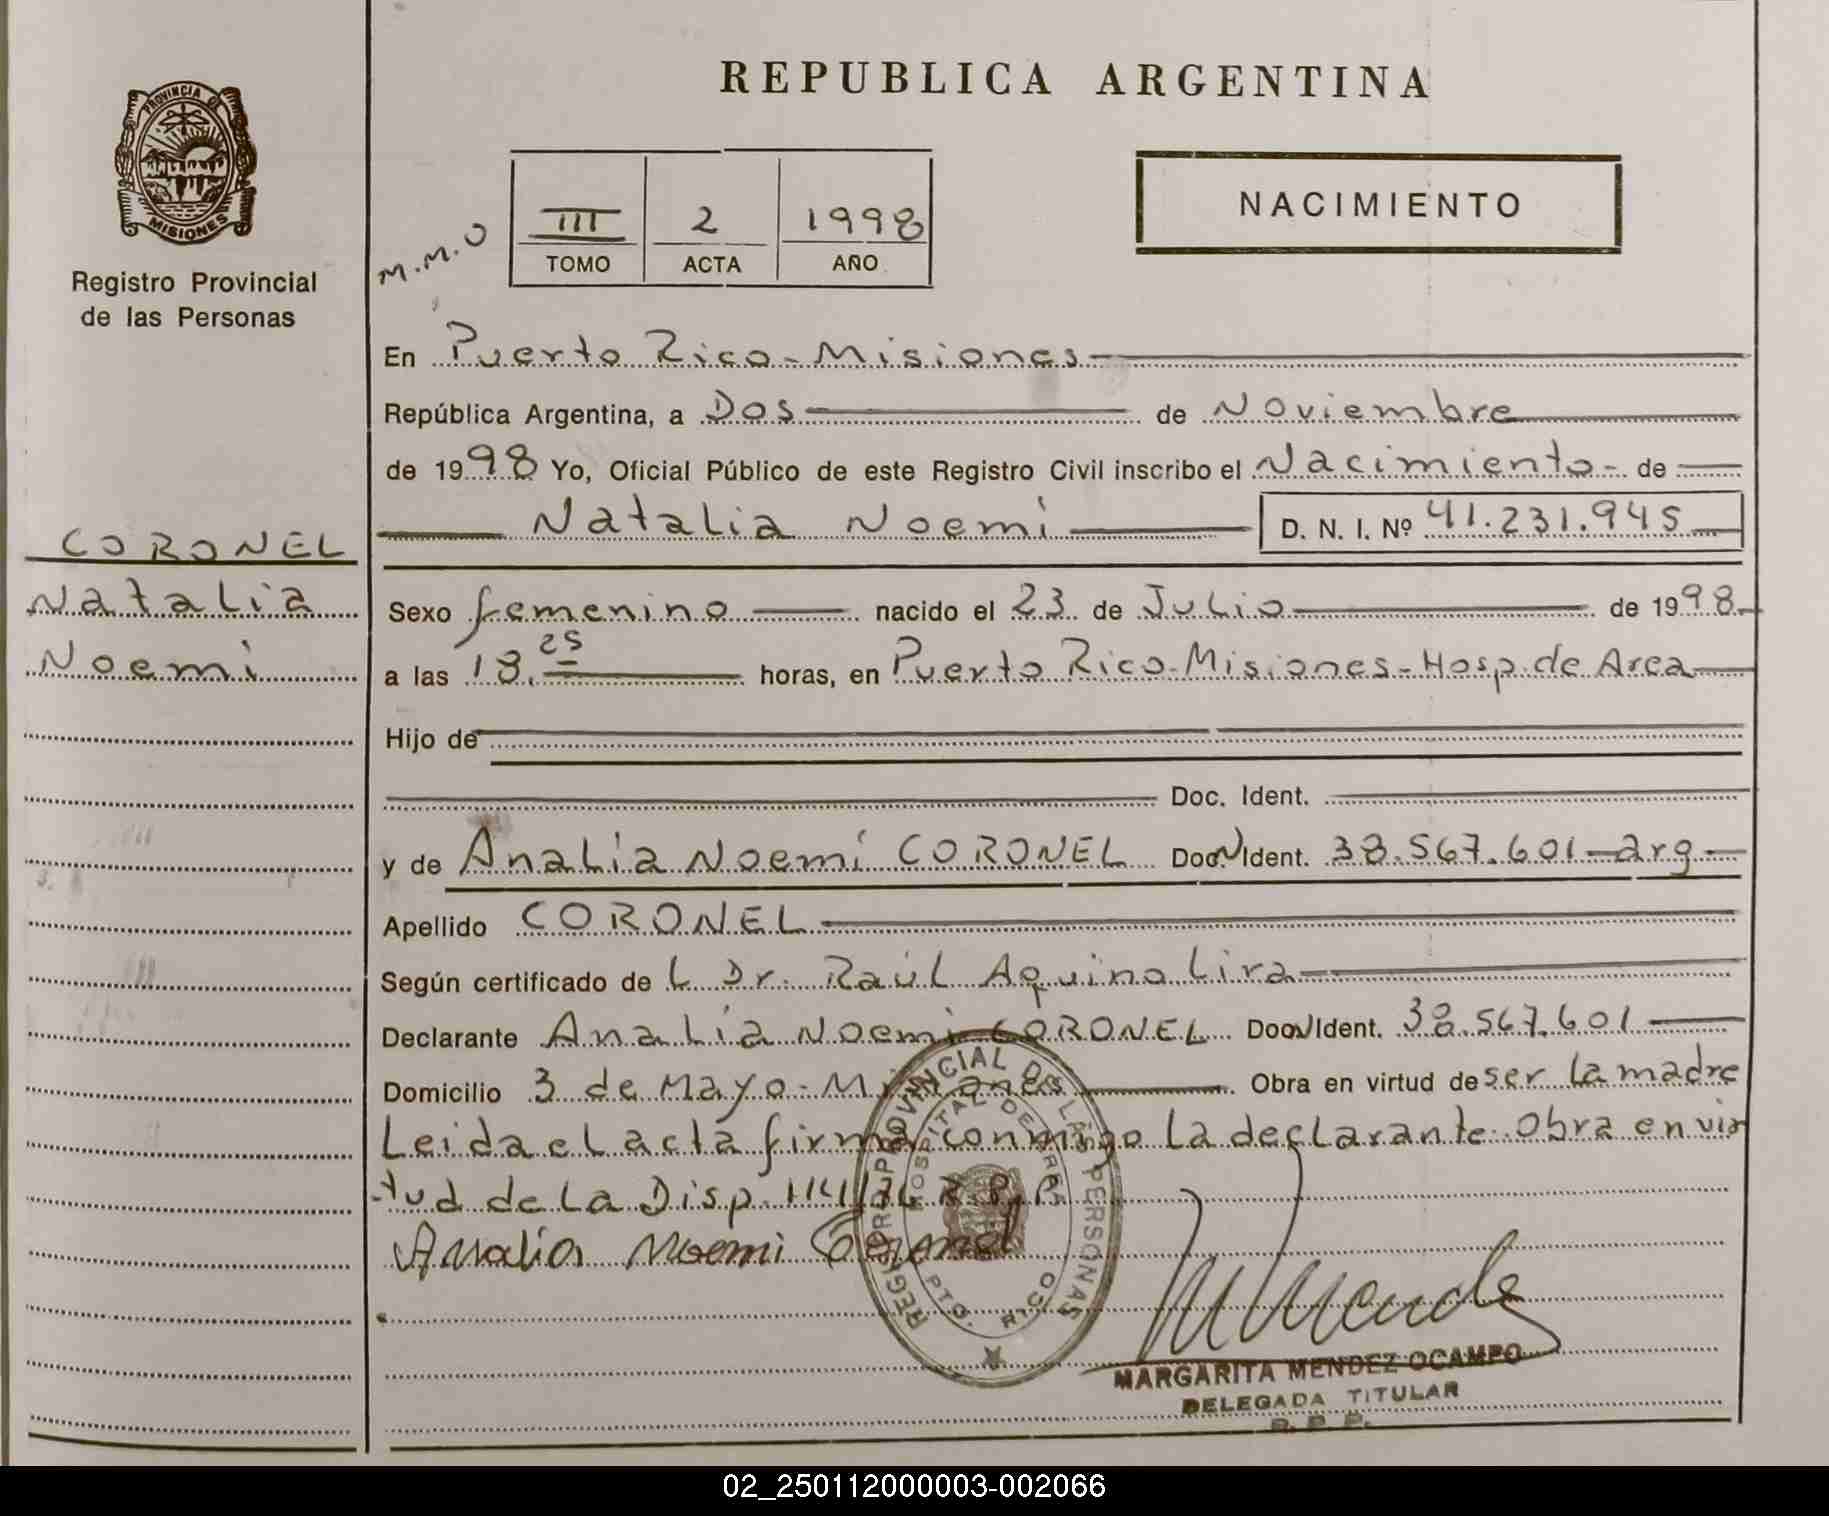 REPUBLICA ARGENTINA
PROVINCIA DE
MISIONES
Registro Provincial
de las Personas
M.M.O
III 2 1998
TOMO ACTA AÑO
NACIMIENTO
CORONEL
Natalia
Noemi
En Puerto Rico - Misiones
República Argentina, a Dos de Noviembre
de 1998 Yo, Oficial Público de este Registro Civil inscribo el Nacimiento - de
Natalia Noemi D. N. I. Nº 41.231.945
Sexo femenino nacido el 23 de Julio de 1998
a las 18.25 horas, en Puerto Rico-Misiones-Hosp. de Area
Hijo de
Doc. Ident.
y de Analia Noemi CORONEL Doc N Ident. 38.567.601-arg
Apellido CORONEL
Según certificado de L Dr. Raúl Aquino Lira
Declarante Analia Noemi CORONEL Doc N Ident. 38.567.601
Domicilio 3 de Mayo - Misiones. Obra en virtud de ser la madre
Leida el acta firma conmigo la declarante. Obra en vir
tud de la Disp. R.P.P.
Analia Noemi Coronel
REGISTRO PROVINCIAL DE LAS PERSONAS
HOSPITAL DE AREA
PTO. RICO
M Mendez
MARGARITA MENDEZ OCAMPO
DELEGADA TITULAR
R. P. P.
02_250112000003-002066